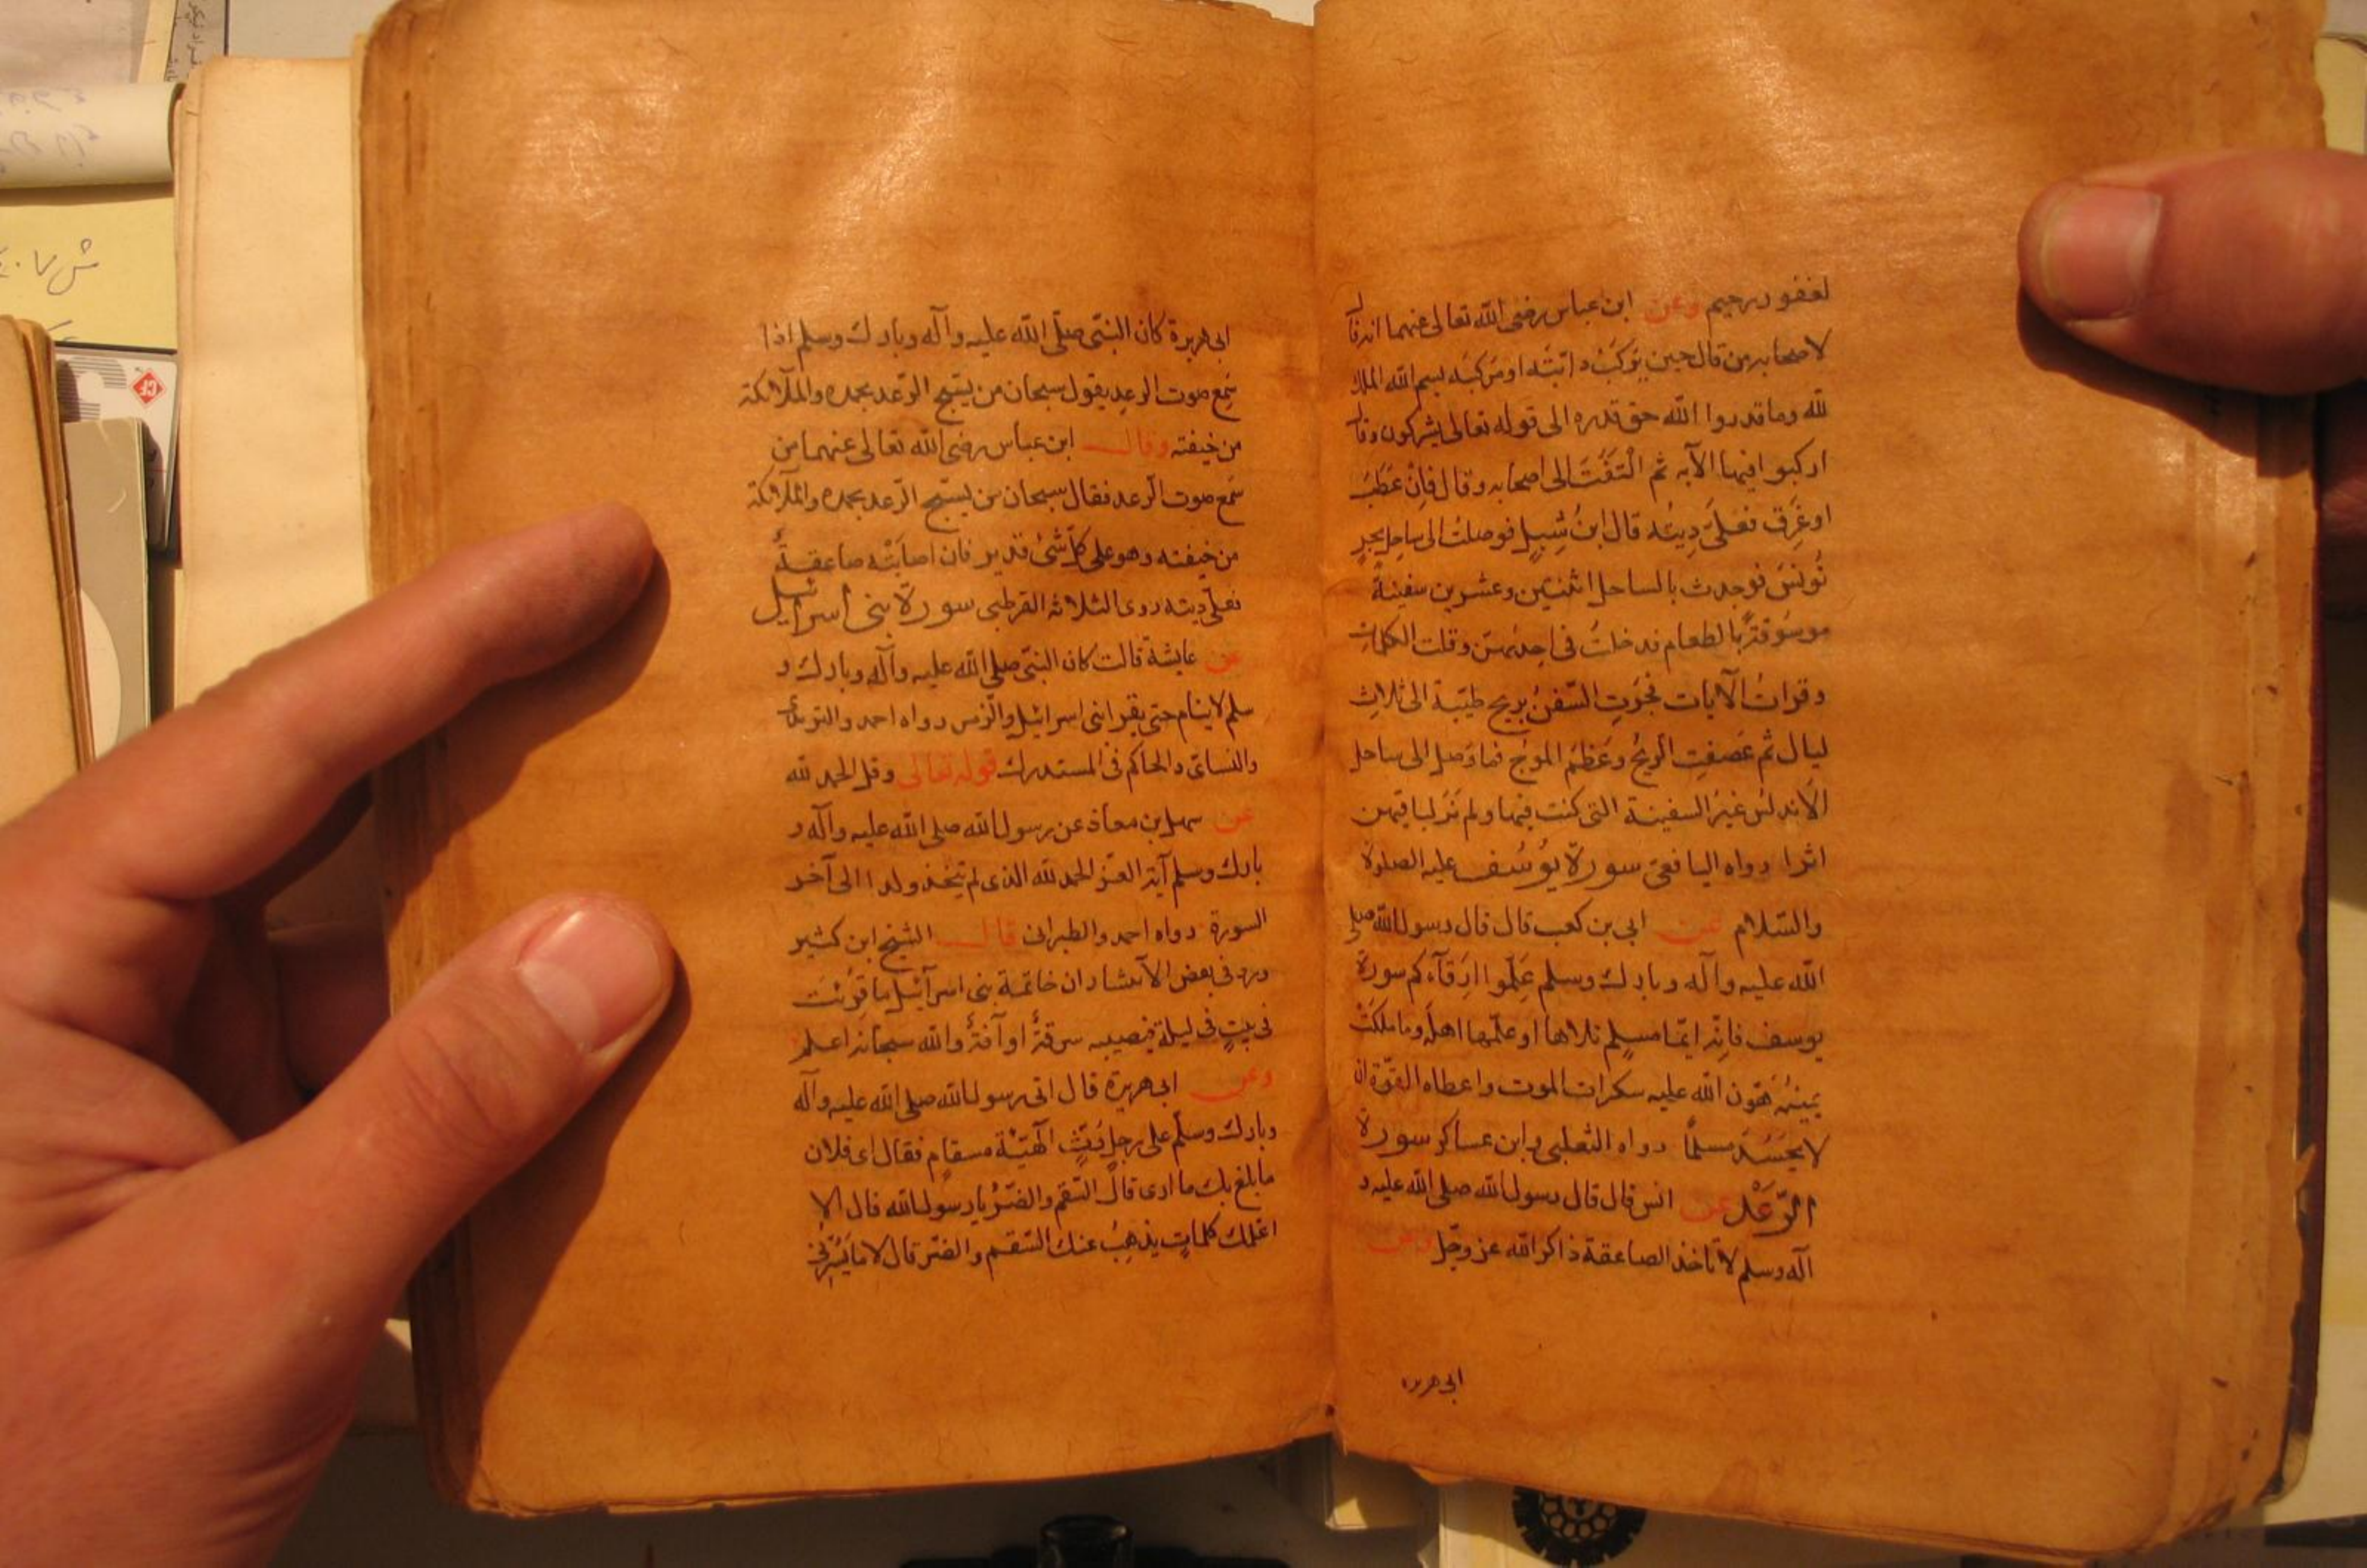 لغفور رحيم وعن ابن عباس رضى الله تعالى عنهما انه قال
لاصحابه من قال حين يركب دابته او مركبه بسم الله الملك
لله وما قدروا الله حق قدره الى قوله تعالى يشركون وقال
اركبوا فيها الآيه ثم التفت الى اصحابه وقال فان عطب
او غرق فعلى ديته قال ابن شبيل فوصلت الى ساحل بحر
تونس فوجدت بالساحل اثنتين وعشرين سفينة
موسوقة بالطعام فدخلت فى احدىهن وقلت الكلمات
وقرات الآيات فجرت السفن بريح طيبة الى ثلاث
ليال ثم عصفت الريح وعظم الموج فما وصل الى ساحل
الاندلس غير السفينة التى كنت فيها ولم نر لباقيهن
اثرا رواه اليافعى سورة يوسف عليه الصلوة
والسلام عن ابى بن كعب قال قال رسول الله صلى
الله عليه وآله وبارك وسلم علموا ارقآءكم سورة
يوسف فانه ايما مسلم تلاها او علمها اهله وما ملكت
يمينه هون الله عليه سكرات الموت واعطاه القوة ان
لا يحسد مسلما رواه الثعلبى وابن عساكر سورة
الرعد عن انس قال قال رسول الله صلى الله عليه و
آله وسلم لا تاخذ الصاعقة ذاكر الله عز وجل وعن
ابى هريره
ابى هريرة كان النبى صلى الله عليه وآله وبارك وسلم اذا
سمع صوت الرعد يقول سبحان من يسبح الرعد بحمده والملآئكة
من خيفته وقال ابن عباس رضى الله تعالى عنهما من
سمع صوت الرعد فقال سبحان من يسبح الرعد بحمده والملآئكة
من خيفته وهو على كل شئ قدير فان اصابته صاعقة
فعلى ديته روى الثلاثة القرطبى سورة بنى اسرائيل
عن عايشة قالت كان النبى صلى الله عليه وآله وبارك و
سلم لا ينام حتى يقرا بنى اسرائيل والزمر رواه احمد والترمذى
والنسائى والحاكم فى المستدرك قوله تعالى وقل الحمد لله
عن سهل بن معاذ عن رسول الله صلى الله عليه وآله و
بارك وسلم آية العز الحمد لله الذى لم يتخذ ولدا الى آخر
السورة رواه احمد والطبرانى قال الشيخ ابن كثير
ورد فى بعض الآثار ان خاتمة بنى اسرآئيل ما قرئت
فى بيت فى ليلة فيصيبه سرقة او آفة والله سبحانه اعلم
وعن ابى هريرة قال اتى رسول الله صلى الله عليه وآله
وبارك وسلم على رجل رث الهيئة مسقام فقال اى فلان
ما بلغ بك ما ارى قال السقم والضر يا رسول الله قال الا
اعلمك كلمات يذهب عنك السقم والضر قال لا ما يسرنى